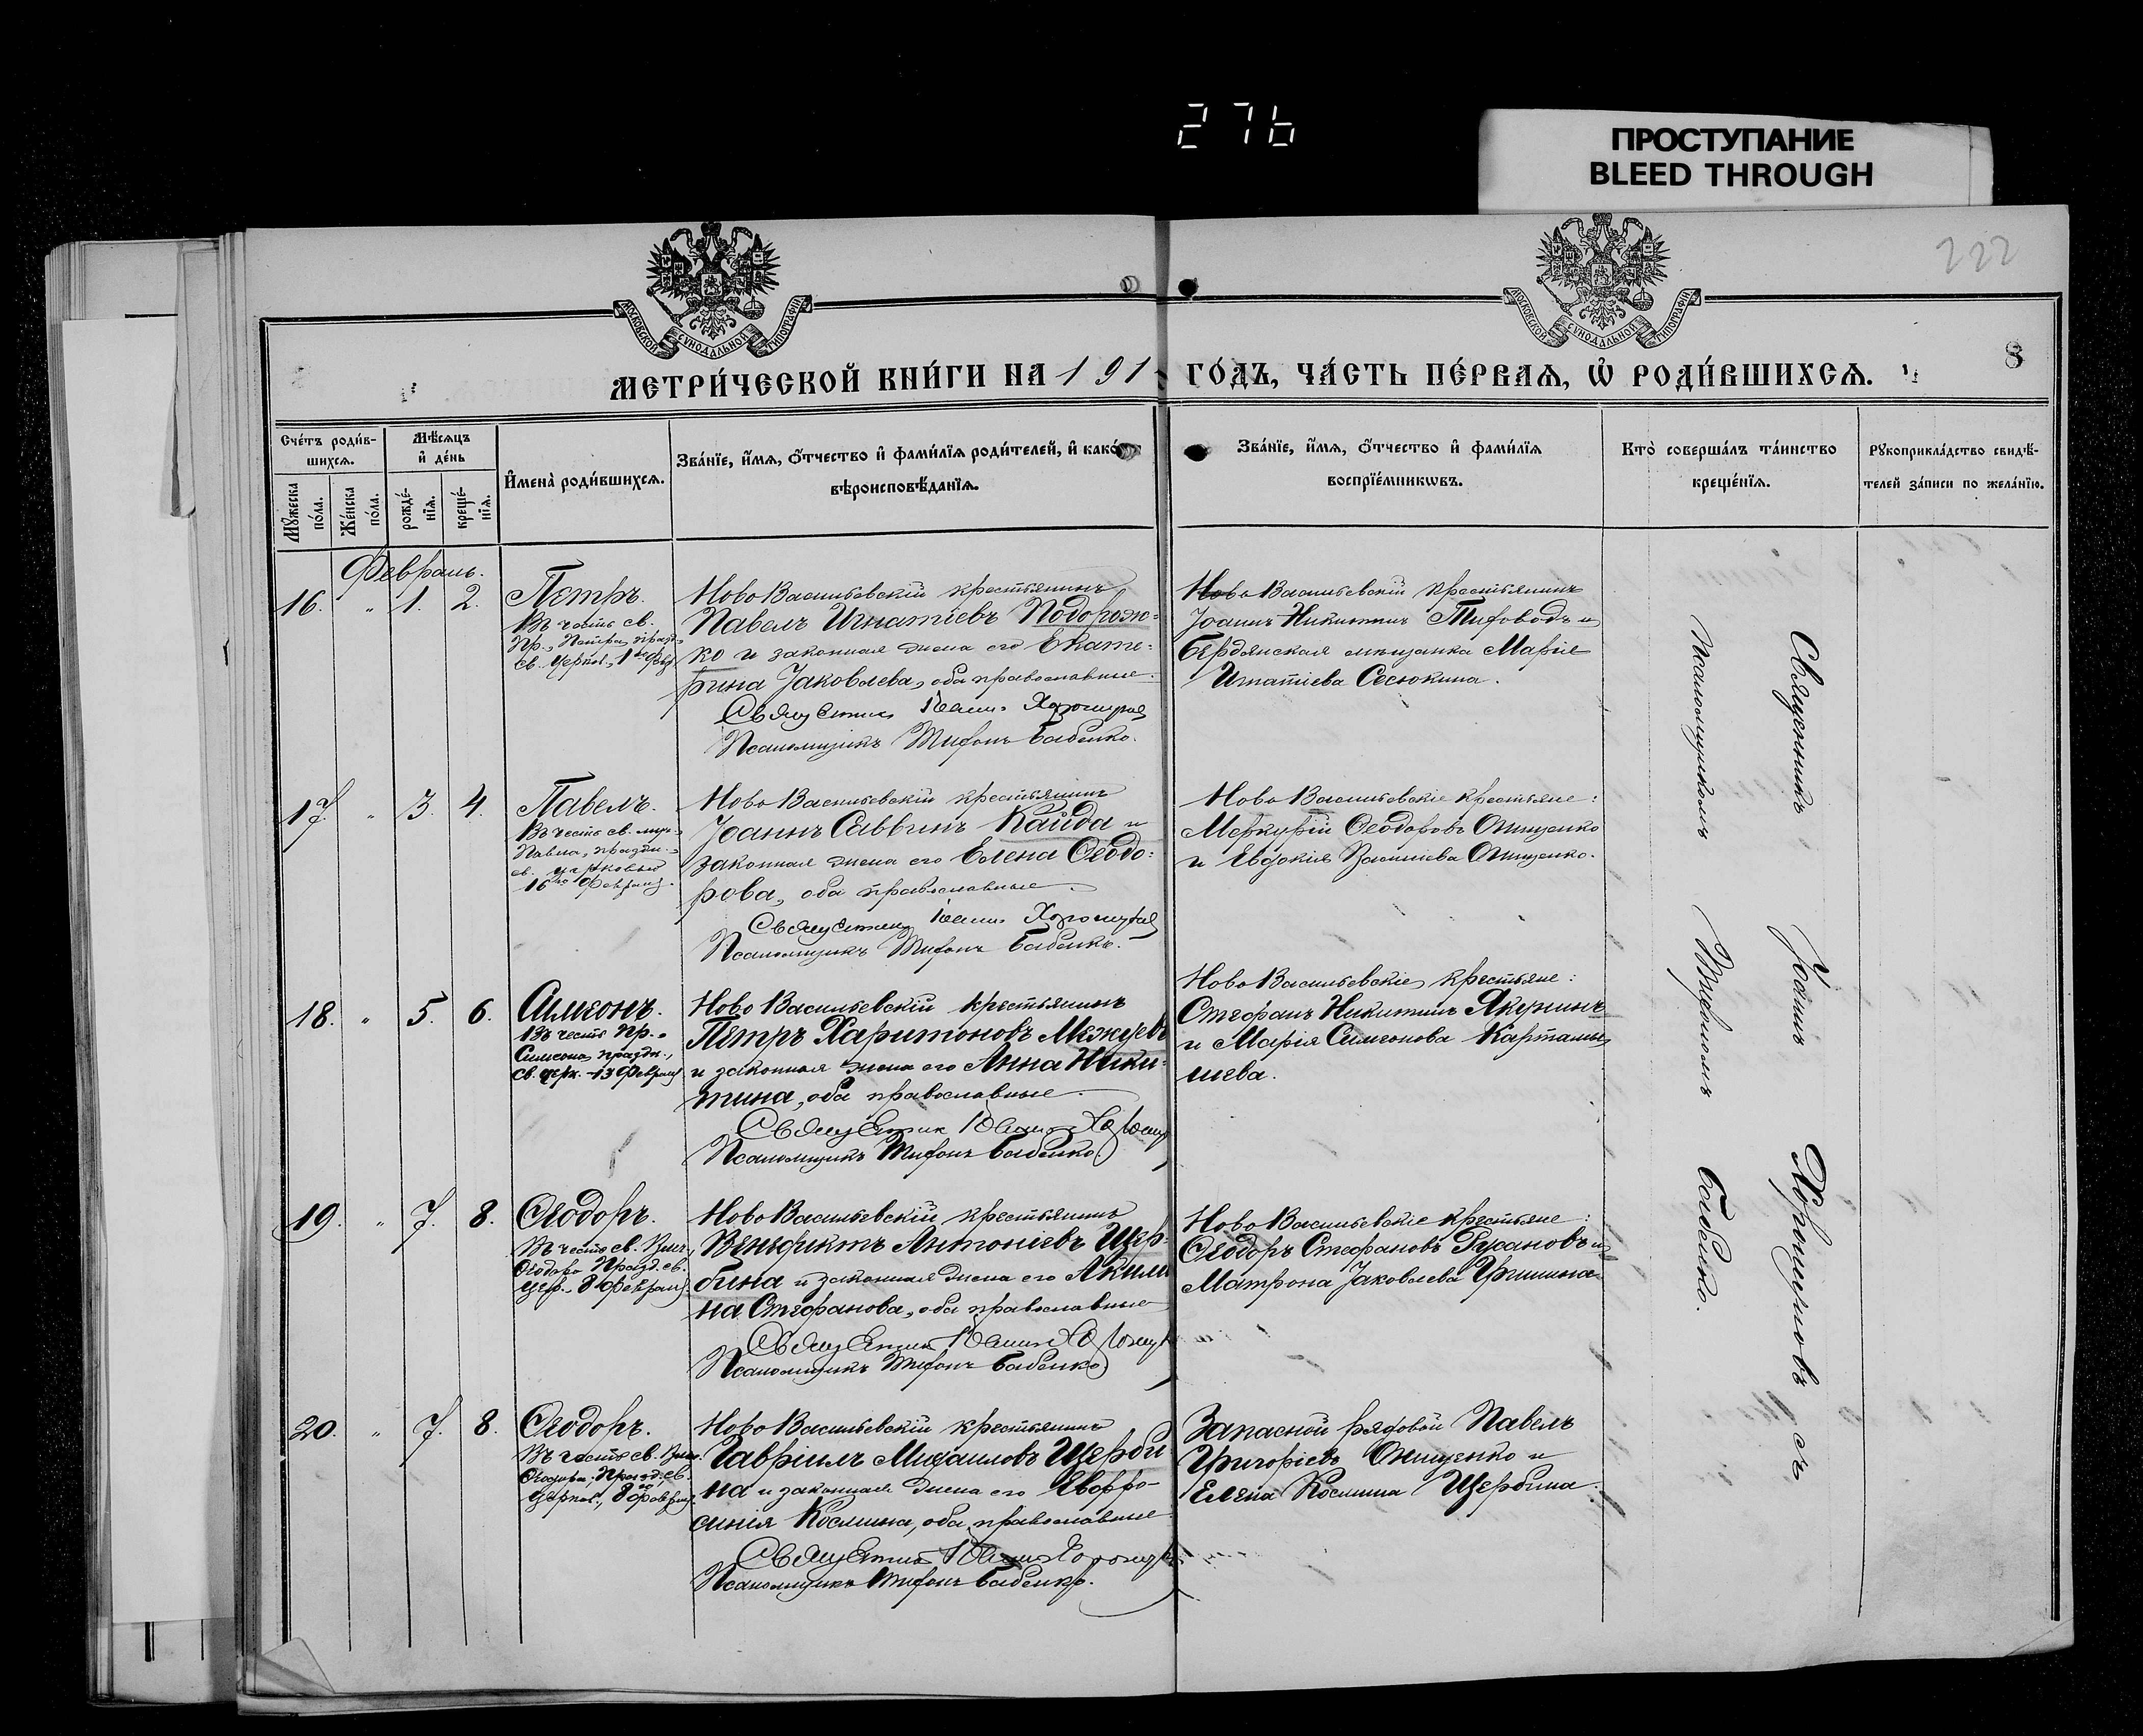 276
ПРОСТУПАНИЕ
BLEED THROUGH
222
МОСКОВСКОЙ СУНОДАЛЬНОЙ ТИПОГРАФІИ
МОСКОВСКОЙ СУНОДАЛЬНОЙ ТИПОГРАФІИ
8
МЕТРИ́ЧЕСКОЙ КНИ́ГИ НА 191 ГО́ДЪ, ЧА́СТЬ ПЕ́РВАѦ, Ѡ҆ РОДИ́ВШИХСѦ.
Сче́тъ роди́в-
шихсѧ.
Мѣ́сѧцъ
и҆ де́нь
Мꙋ́жеска
по́ла.
Же́нска
по́ла.
рожде́-
нїѧ.
креще́-
нїѧ.
И҆мена̀ роди́вшихсѧ.
Зва́нїе, и҆́мѧ, ѻ҆́тчество и҆ фами́лїѧ роди́телей, и҆ како́й
вѣроисповѣ́данїѧ.
Зва́нїе, и҆́мѧ, ѻ҆́тчество и҆ фами́лїѧ
воспрїе́мникѡвъ.
Кто̀ соверша́лъ та́инство
креще́нїѧ.
Рꙋкоприкла́дство свидѣ́-
телей за́писи по жела́нїю.
Февраль.
16. " 1. 2.
Петръ.
Въ честь св.
Пр. Петра, празд.
св. церков., 1го Фев.
Ново Васильевскій крестьянинъ
Павелъ Игнатіевъ Подорож=
ко и законная жена его Екате=
рина Іаковлева, оба православные.
Священник Іоаннъ
Псаломщикъ Тифонъ Бабенко.
Ново Васильевскій крестьянинъ
Іоаннъ Никитинъ и
Бердянская мѣщанка Марія
Игнатіева Сесюкина.
17. " 3. 4.
Павелъ.
Въ честь св. муч.
Павла, праздн.
св. церковью
16го Февраля.
Ново Васильевскій крестьянинъ
Іоаннъ Саввинъ Кайда и
законная жена его Елена Ѳеодо=
рова, оба православные.
Священник Іоаннъ
Псаломщикъ Тифонъ Бабенко.
Ново Васильевскіе крестьяне:
Меркурій Ѳеодоровъ Онищенко
и Евдокія Василіева Онищенко.
18. " 5. 6.
Симеонъ.
Въ честь Пр.
Симеона, праздн.,
св. церк. 13 Февраля
Ново Васильевскій крестьянинъ
Петръ Харитоновъ Межуевъ
и законная жена его Анна Ники=
тина, оба православные.
Священник Іоаннъ
Псаломщикъ Тифонъ Бабенко
Ново Васильевскіе крестьяне:
Стефанъ Никитинъ Якунинъ
и Марія Симеонова Карташы=
шева.
19. " 7. 8.
Ѳеодоръ.
Въ честь св. Влмч.
Ѳеодора Празд. св.
цер., 8 Февраля.
Ново Васильевскій крестьянинъ
Венедиктъ Антоніевъ Щер=
бина и законная жена его Акили
на Стефанова, оба православные
Священник Іоаннъ
Псаломщикъ Тифонъ Бабенко
Ново Васильевскіе крестьяне:
Ѳеодоръ Стефановъ Русановъ и
Матрона Іаковлева Гришина.
20. " 7. 8.
Ѳеодоръ.
Въ честь св. Влмч.
Ѳеодора, Празд. св.
церков., 8го Февраля.
Ново Васильевскій крестьянинъ
Гавріилъ Михаиловъ Щерби
на и законная жена его Евфро-
синія Космина, оба православные
Священник Іоаннъ
Псаломщикъ Тифонъ Бабенко.
Запасной рядовой Павелъ
Григоріевъ Онищенко и
Елена Космина Щербина.
Священникъ Іоаннъ съ
Псаломщикомъ Бабенко.